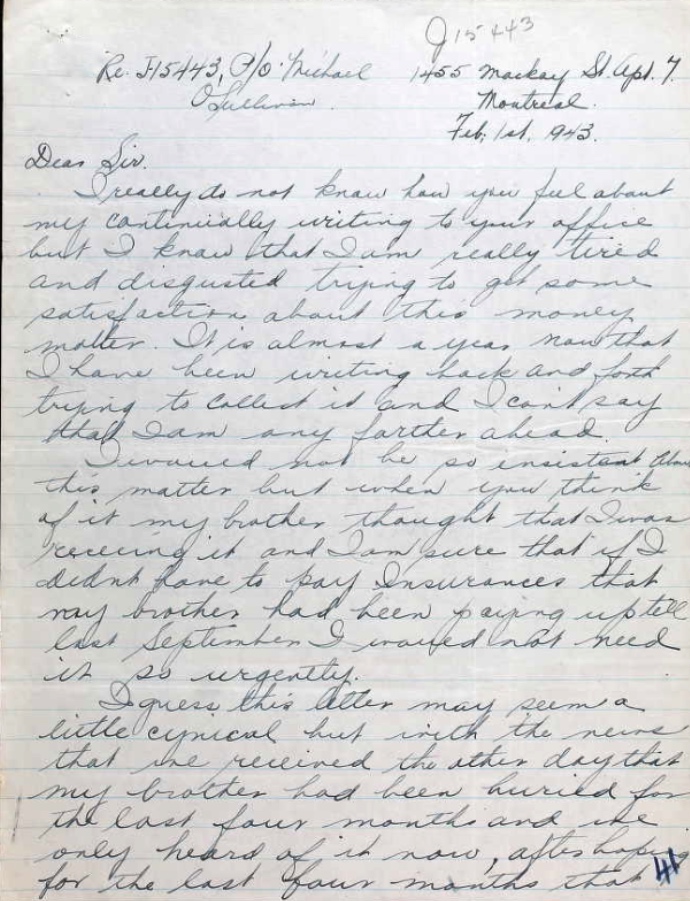 J15443
Re. J15443, P/O Michael 1455 Mackay St. Apt. 7.
O'Sullivan. Montreal.
Feb, 1st, 1943.
Dear Sir.
I really do not know how you feel about
my continually writing to your office
but I know that I am really tired
and disgusted trying to get some
satisfaction about this money
matter. It is almost a year now that
I have been writing back and forth
trying to collect it and I cant say
that I am any farther ahead.
I would not be so insistent about
this matter but when you think
of it my brother thought that I was
receiving it and I am sure that if I
didnt have to pay Insurances that
my brother had been paying up till
last September I would not need
it so urgently.
I guess this letter may seem a
little cynical but with the news
that we received the other day that
my brother had been buried for
the last four months and we
only heard of it now, after hoping
for the last four months that
41